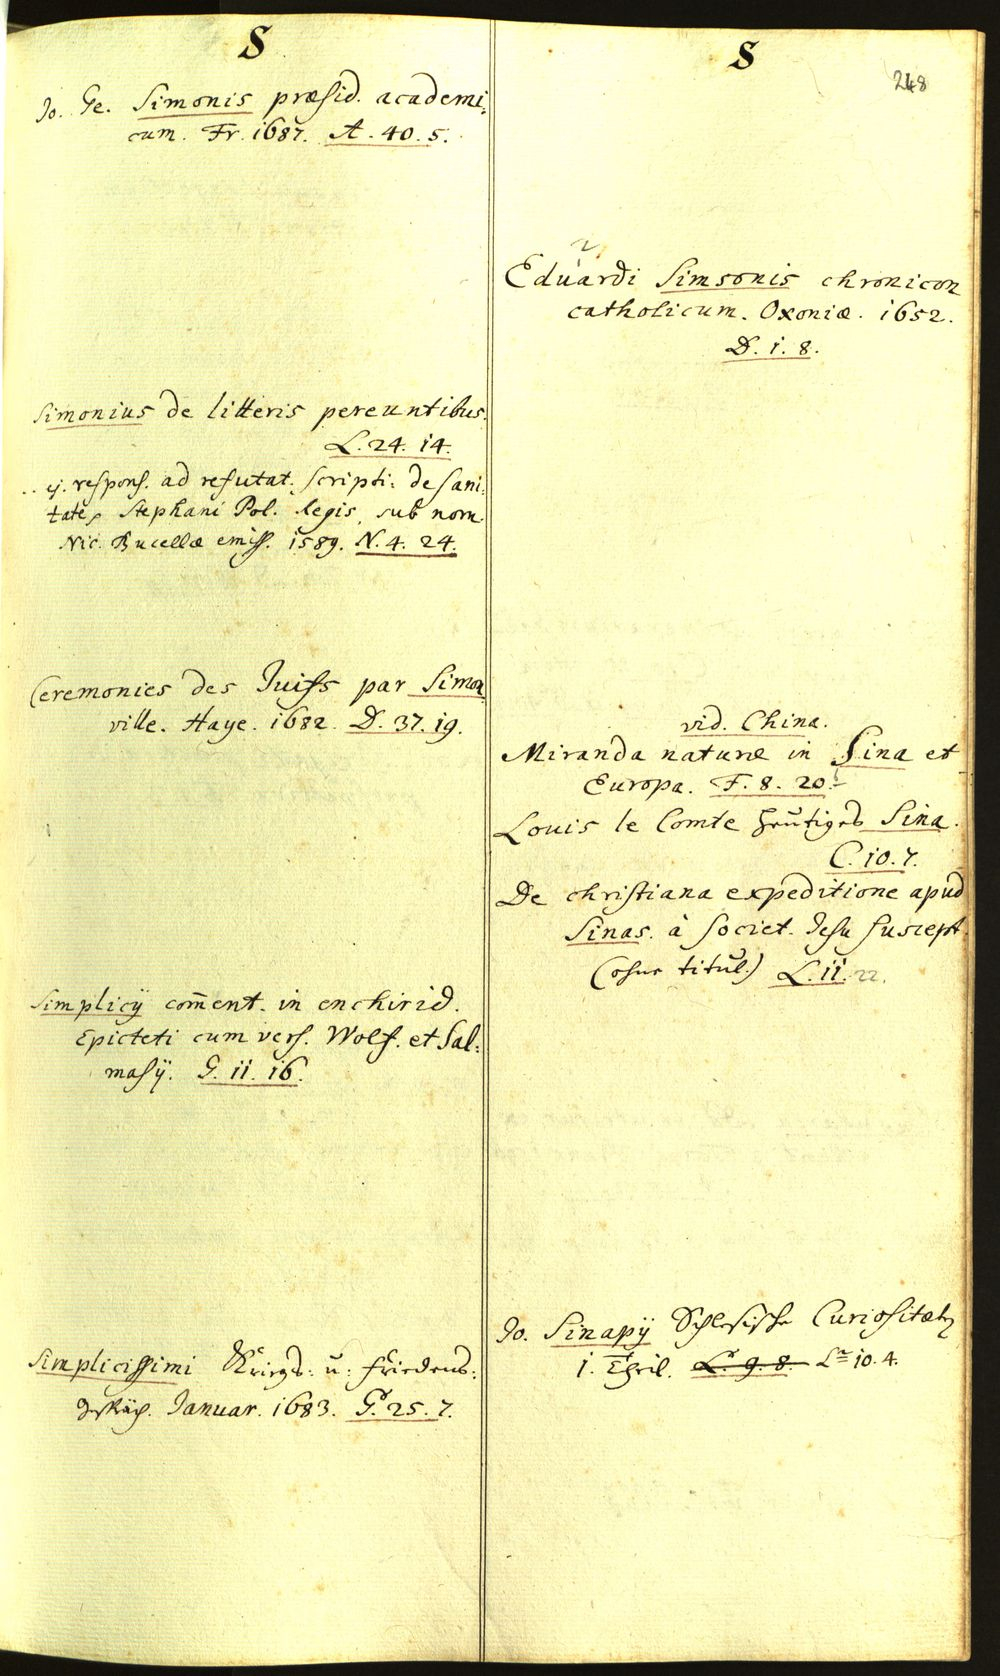 S
Jo. Ge. Simonis præsid. academi:
cum. Fr. 1687. A. 40. 5.
Simonius de litteris pereuntibus.
L. 24. 14.
.. ej. respons. ad refutat. scripti: de sani:
tate, Stephani Pol. Regis, sub nom.
Nic. Bucellæ emiss. 1589. N. 4. 24.
Ceremonies des Juifs par Simon
ville. Haye. 1682. D. 37. 19.
Simplicij com̄ent. in enchirid.
Epicteti cum vers. Wolf. et Sal:
masij. G. 11. 16.
Simplicissimi Kriegs: u: Friedens:
Gespräch. Januar. 1683. G. 25. 7.
S
248
Eduardi Simsonis chronicon
catholicum. Oxoniæ. 1652.
D. 1. 8.
vid. China.
Miranda naturæ in Sina et
Europa. F. 8. 20.
Louis le Comte heutiges Sina.
C. 10. 7.
De christiana expeditione apud
Sinas. à Societ. Jesu suscept.
(ohne titul.) L. 11. 22.
Jo. Sinapij Schlesische Curiositæten
1. Theil. L. 9. 8. L= 10. 4.